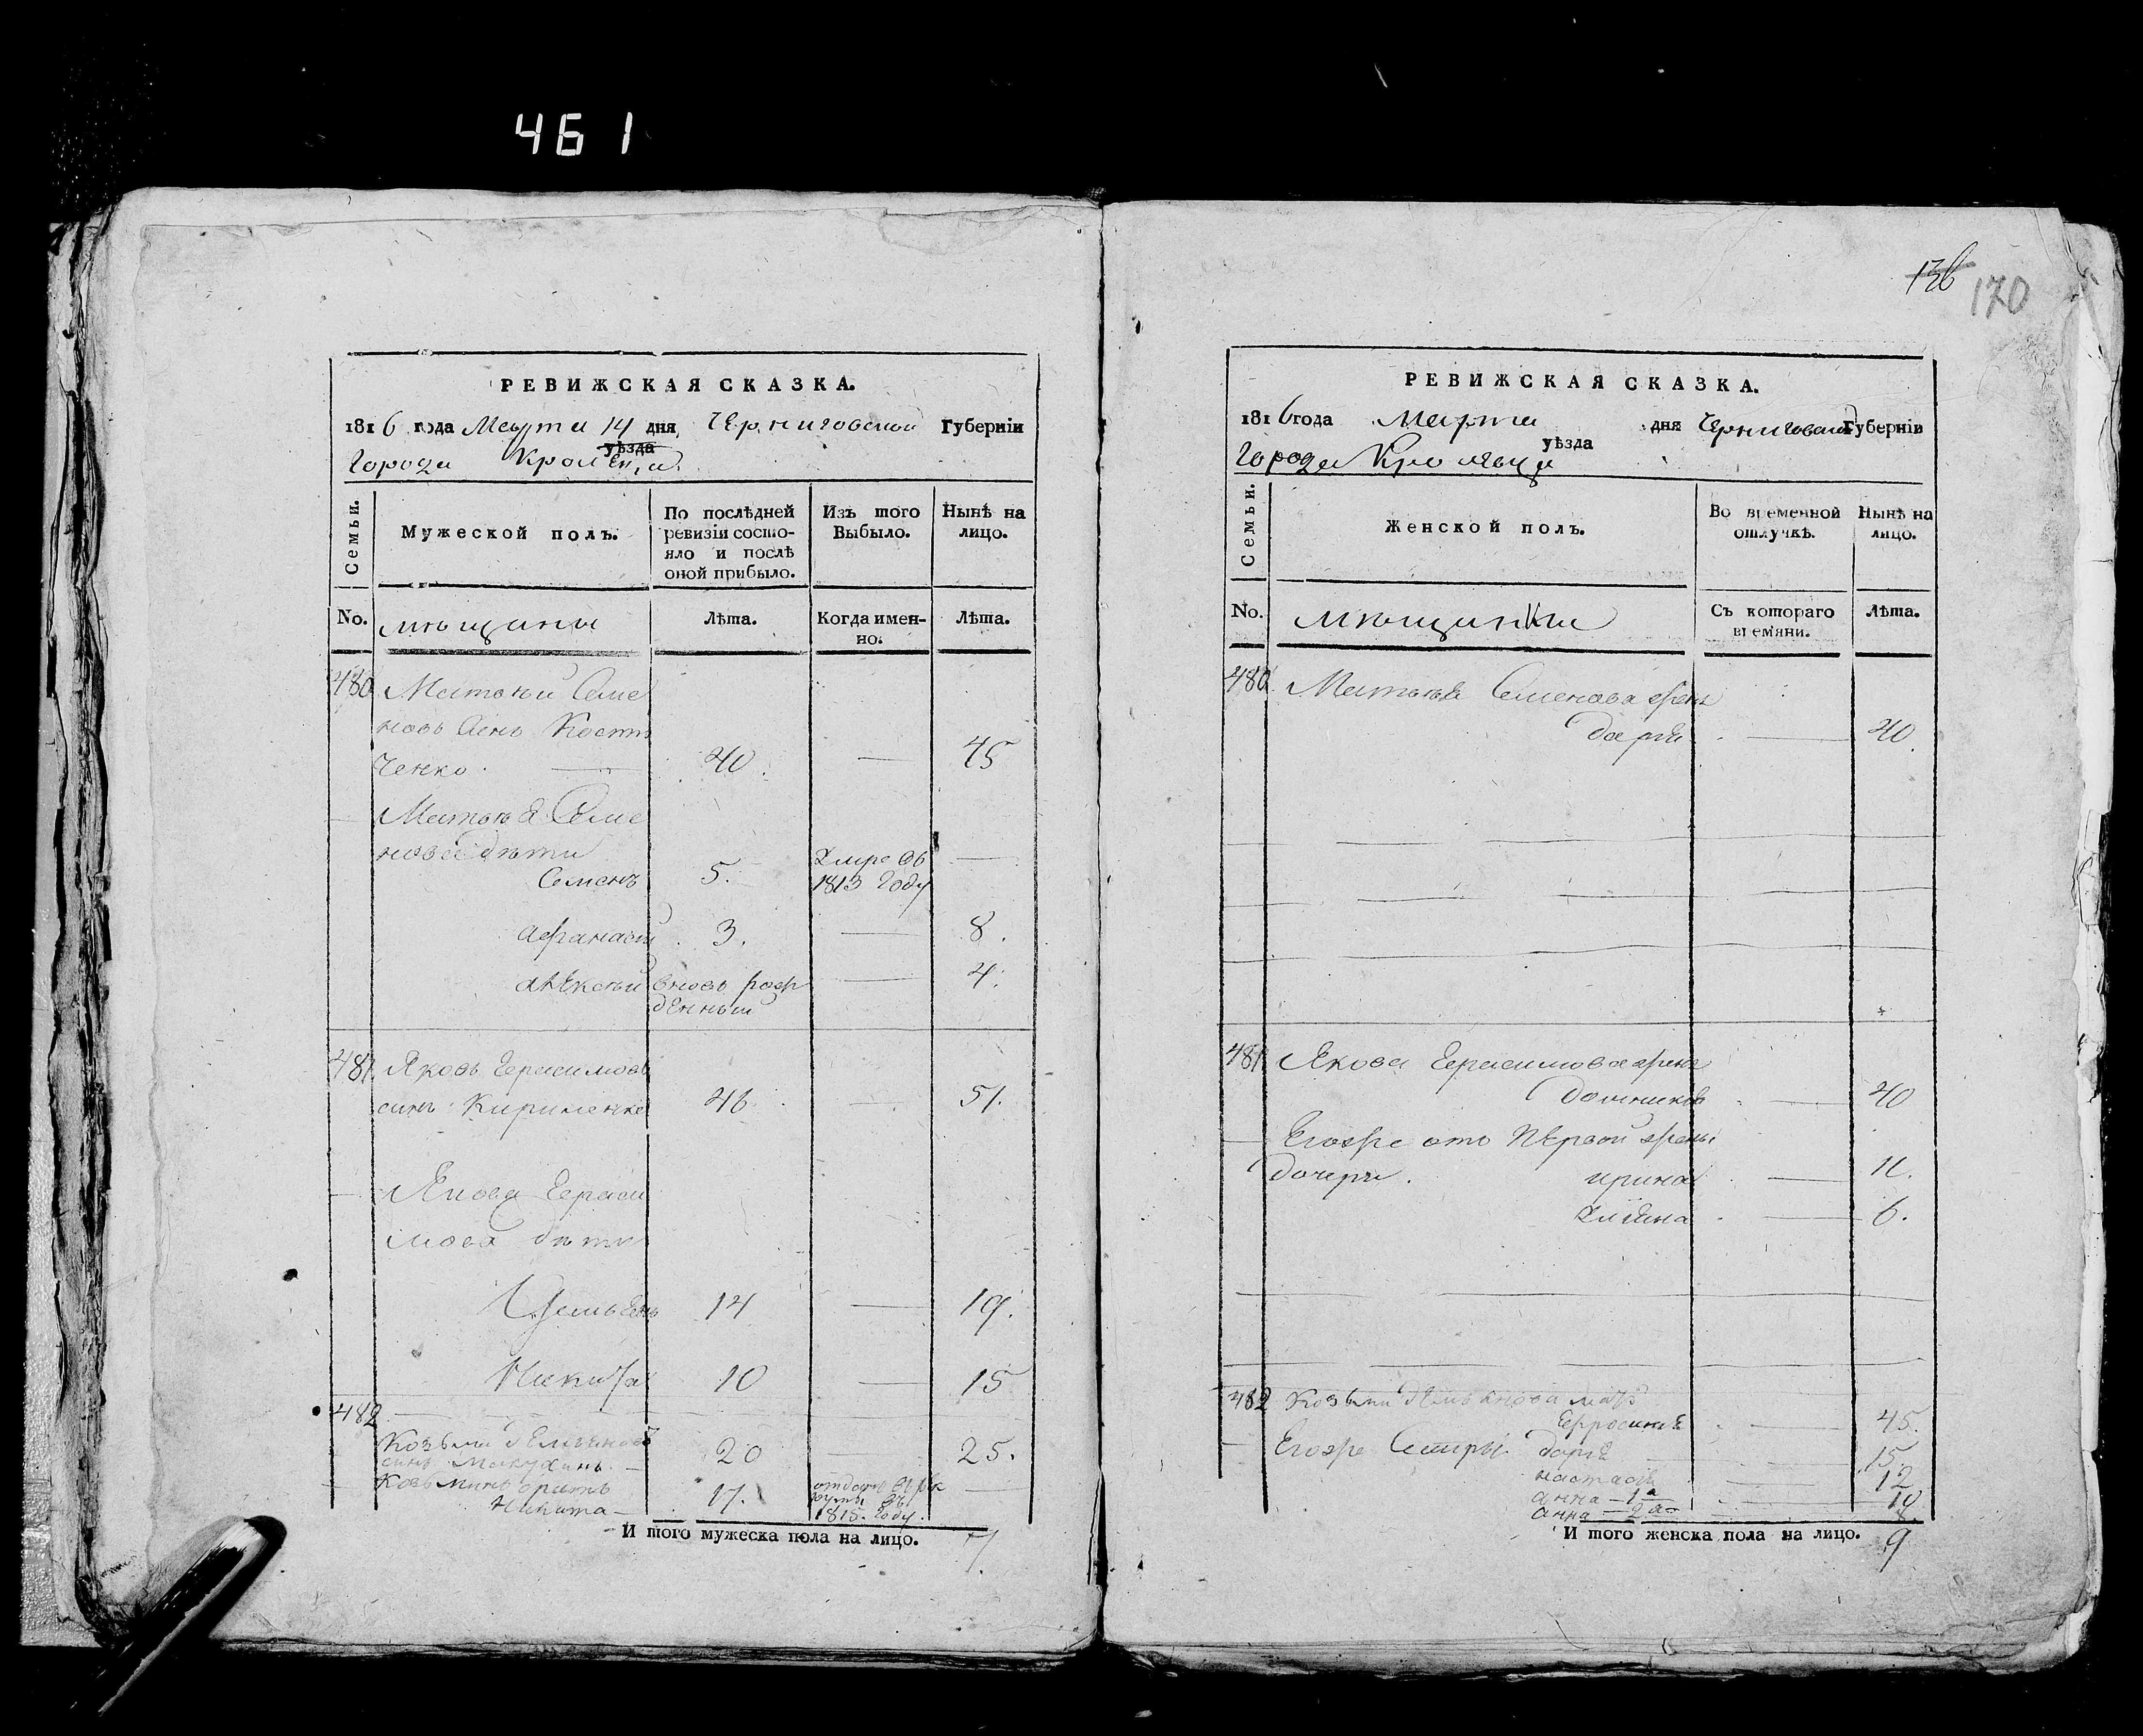 461
136 170
РЕВИЖСКАЯ СКАЗКА.
1816 года Марта 14 дня Черниговской Губерніи
уѣзда
Города Кролевца
Семьи.
Мужеской полъ.
По послѣдней ревизіи состояло и послѣ оной прибыло.
Изъ того Выбыло.
Нынѣ на лицо.
No. мещани Лѣта. Когда именно. Лѣта.
480 Матвѣй Семе
новъ синъ Кости
ченко. — 40. — 45
— Матвѣя Семе
нова дѣти
Семенъ 5. Умре въ 1813 году —
афанасій 3. — 8.
алексѣй вновь рож
денный — 4.
481. Яковъ Герасимовъ
синъ Кириленко 46 — 51.
— Якова Гераси
мова дѣти
Емельянъ 14 — 19.
Никита 10 — 15
482
Козьма Емельяновъ
синъ 20 — 25.
— Козьминъ братъ
Никита — 17. отданъ въ рек
рути въ
1815 году. —
И того мужеска пола на лицо. 7
РЕВИЖСКАЯ СКАЗКА.
1816 года Марта дня Черниговской Губерніи
уѣзда
Города Кролевца
Семьи.
Женской полъ.
Во временной отлучкѣ.
Нынѣ на лицо.
No. мещанки Съ котораго времяни. Лѣта.
480 Матвѣя Семенова жена
дарія — 40.
481 Якова Герасимова жена
— 40
— Егоже отъ Первой жены
дочери. ирина — 11.
Улияна — 6.
482 Козьми Емельянова мать
Ефросинія — 45.
— Егоже Сестры дарія — 15.
настасія — 12
анна — 1я — 10
анна — 2я — 8.
И того женска пола на лицо. 9